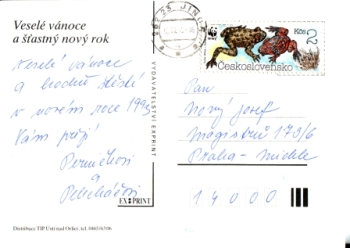 Veselé vánoce
a šťastný nový rok
Veselé vánoce
a hodně štěstí
v novém roce 1993
Vám přejí
a
VYDAVATELSTVÍ EXPRINT
EXPRINT
Distribuce TIP Ústí nad Orlicí, tel. 0465/6306
Kčs 2
Československo
Pan
Nový Josef
Magistrů 173/6
Praha - Michle
14000